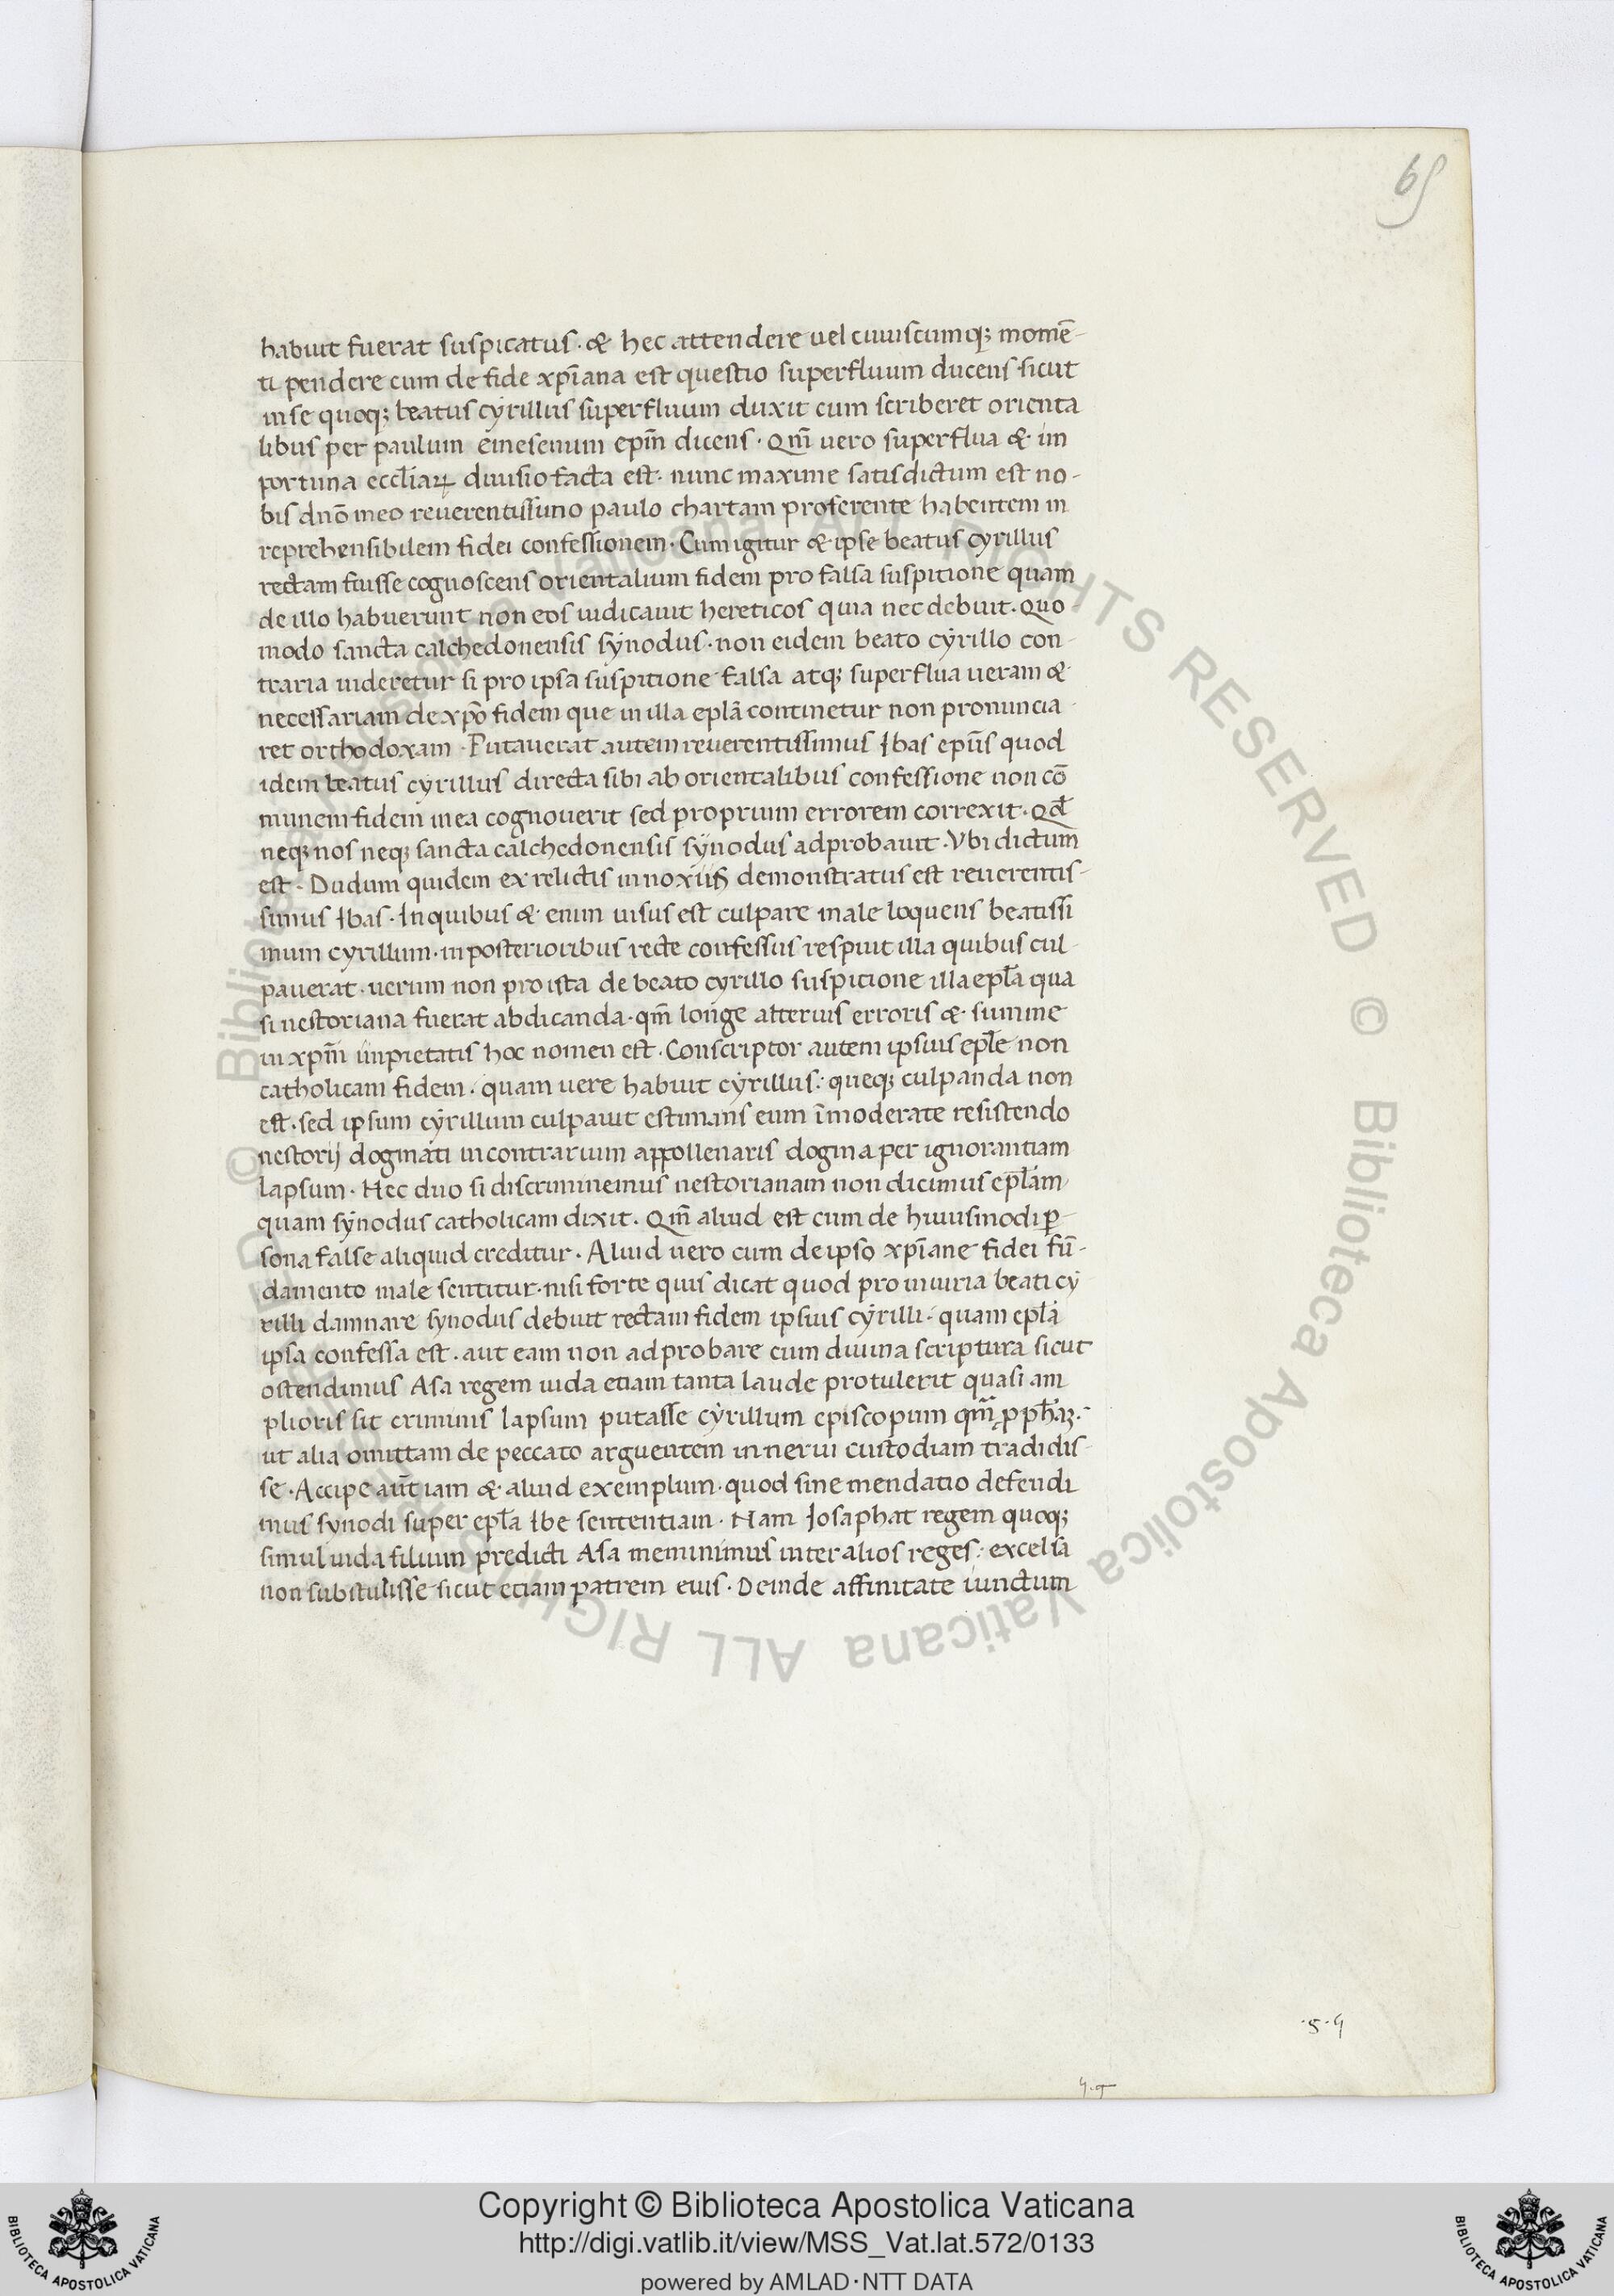 65
habuit fuerat suspicatus. & hec attendere uel cuiuscumq; momē-
ti pendere cum de fide xp̄iana est questio superfluum ducens sicut
in se quoq; beatus cyrillus superfluum duxit cum scriberet orienta
libus per paulum emesenum ep̄m dicens. Qm̄ uero superflua & im
portuna eccl̄iaꝝ diuisio facta est. nunc maxime satisdictum est no-
bis dn̄o meo reuerentissimo paulo chartam proferente habentem in
reprehensibilem fidei confessionem. Cum igitur & ipse beatus cyrillus
rectam fuisse cognoscens orientalium fidem pro falsa suspitione quam
de illo habuerunt non eos iudicauit hereticos quia nec debuit. Quo-
modo sancta calchedonensis synodus. non eidem beato cyrillo con-
traria uideretur si pro ipsa suspitione falsa atq; superflua ueram &
necessariam de xp̄o fidem que in illa epl̄a continetur non pronuncia-
ret orthodoxam. Putauerat autem reuerentissimus Ibas ep̄us quod
idem beatus cyrillus directa sibi ab orientalibus confessione non cō
munem fidem in ea cognouerit sed proprium errorem correxit. Qđ
neq; nos neq; sancta calchedonensis synodus adprobauit. Vbi dictum
est. Dudum quidem ex relictis innoxiis demonstratus est reuerentis-
simus Ibas. In quibus & enim uisus est culpare male loquens beatissi
mum cyrillum. in posterioribus recte confessus respuit illa quibus cul-
pauerat. uerum non pro ista de beato cyrillo suspitione illa epl̄a qua
si nestoriana fuerat abdicanda. qm̄ longe alterius erroris & summe
in xp̄m impietatis hoc nomen est. Conscriptor autem ipsius epl̄e non
catholicam fidem. quam uere habuit cyrillus: queq; culpanda non
est. sed ipsum cyrillum culpauit estimans eum īmoderate resistendo
nestorij dogmati in contrarium appollenaris dogma per ignorantiam
lapsum. Hec duo si discriminemus nestorianam non dicimus epl̄am
quam synodus catholicam dixit. Qm̄ aliud est cum de huiusmodi ꝑ-
sona false aliquid creditur. Aliud uero cum de ipso xp̄iane fidei fū-
damento male sentitur. nisi forte quis dicat quod pro iniuria beati cy
rilli damnare synodus debuit rectam fidem ipsius cyrilli. quam epl̄a
ipsa confessa est. aut eam non adprobare cum diuina scriptura sicut
ostendimus Asa regem iuda etiam tanta laude protulerit quasi am
plioris sit criminis lapsum putasse cyrillum episcopum
ut alia omittam de peccato arguentem in nerui custodiam tradidis-
se. Accipe aūt iam & aliud exemplum. quod sine mendatio defendi
mus synodi super epl̄a Ibe sententiam. Nam Iosaphat regem quoq;
simul iuda filium predicti Asa meminimus inter alios reges: excelsa
non substulisse sicut etiam patrem eius. Deinde affinitate iunctum
Copyright © Biblioteca Apostolica Vaticana
http://digi.vatlib.it/view/MSS_Vat.lat.572/0133
powered by AMLAD·NTT DATA
BIBLIOTECA APOSTOLICA VATICANA
BIBLIOTECA APOSTOLICA VATICANA